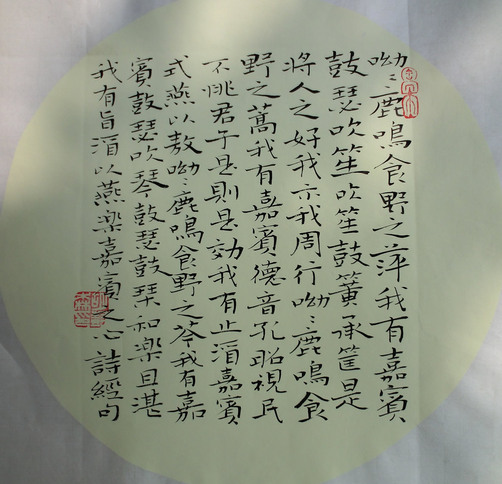 呦〻鹿鳴食野之萍我有嘉賓
鼓瑟吹笙吹笙鼓簧承筐是
將人之好我示我周行呦〻鹿鳴食
野之蒿我有嘉賓德音孔昭視民
不恌君子是則是効我有止酒嘉賓
式燕以敖呦〻鹿鳴食野之芩我有嘉
賓鼓瑟吹琴鼓瑟鼓琴和樂且湛
我有旨酒以燕樂嘉賓之心詩經句